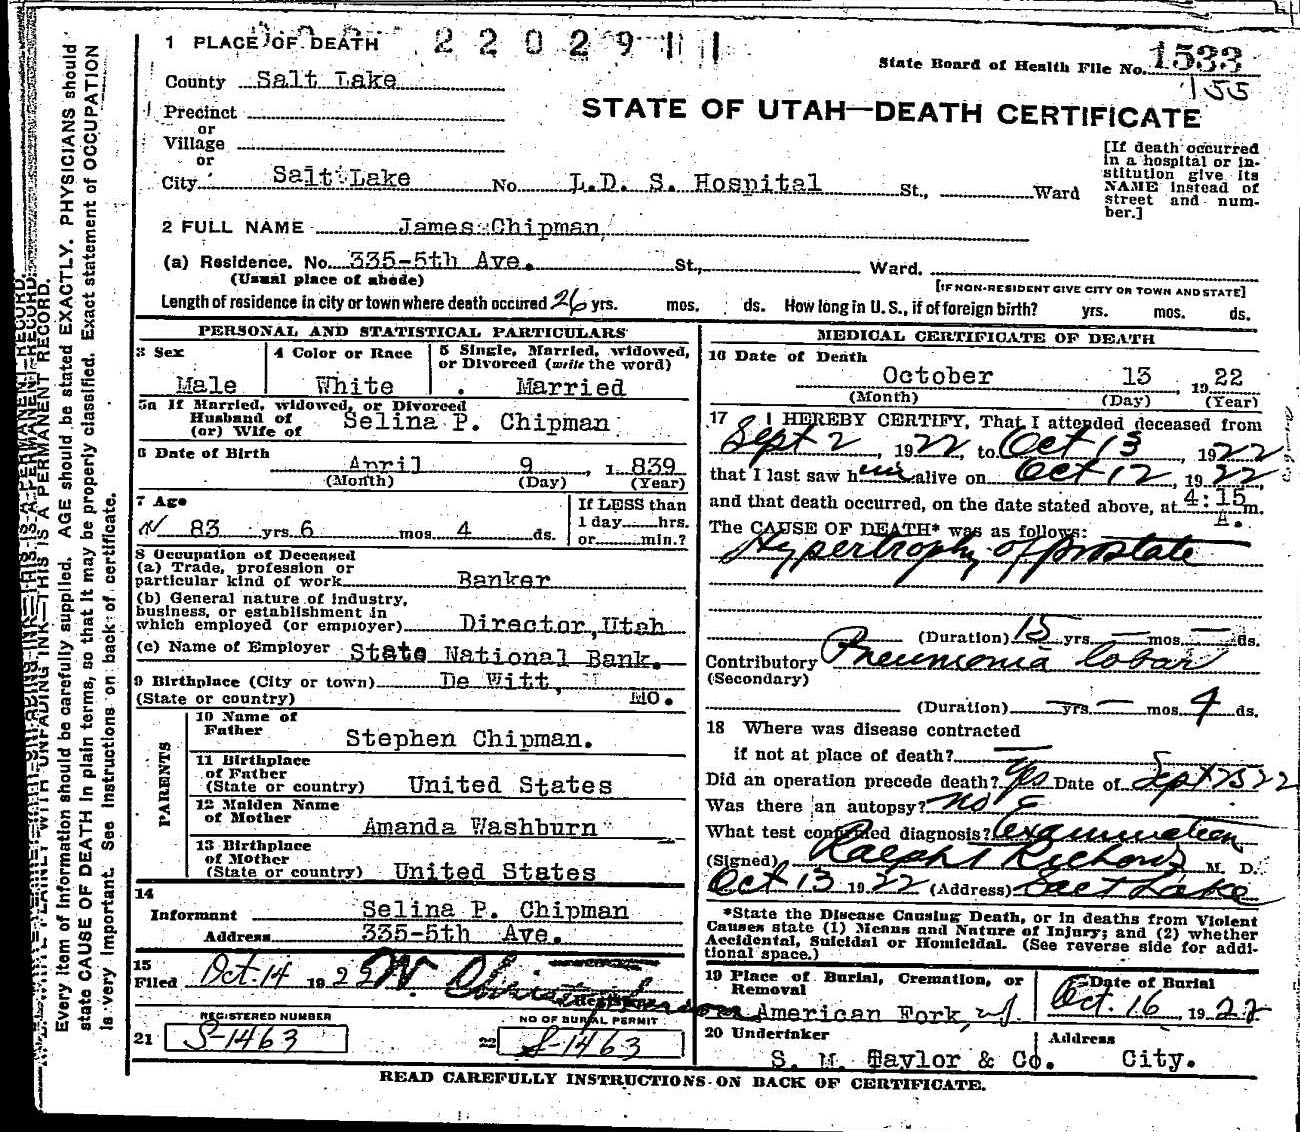 1 PLACE OF DEATH 2 2 0 2 9 1 1
State Board of Health File No. 1533
155
County Salt Lake
STATE OF UTAH—DEATH CERTIFICATE
Precinct
or
Village
or
City Salt Lake No. L.D. S. Hospital St., Ward
[If death occurred in a hospital or institution give its NAME instead of street and number.]
2 FULL NAME James Chipman
(a) Residence. No. 335-5th Ave. St., Ward.
(Usual place of abode)
[IF NON-RESIDENT GIVE CITY OR TOWN AND STATE]
Length of residence in city or town where death occured 26 yrs. mos. ds. How long in U.S., if of foreign birth? yrs. mos. ds.
PERSONAL AND STATISTICAL PARTICULARS
3 Sex
Male
4 Color or Race
White
5 Single, Married, widowed,
or Divorced (write the word)
Married
5a If Married, widowed, or Divorced
Husband of
(or) Wife of Selina P. Chipman
6 Date of Birth
April 9, 1839
(Month) (Day) (Year)
7 Age
83 yrs 6 mos. 4 ds.
If LESS than
1 day hrs.
or min.?
8 Occupation of Deceased
(a) Trade, profession or
particular kind of work Banker
(b) General nature of industry,
business, or establishment in
which employed (or employer) Director, Utah
(c) Name of Employer State National Bank.
9 Birthplace (City or town) De Witt,
(State or country) Mo.
PARENTS
10 Name of
Father Stephen Chipman.
11 Birthplace
of Father
(State or country) United States
12 Maiden Name
of Mother Amanda Washburn
13 Birthplace
of Mother
(State or country) United States
14
Informant Selina P. Chipman
Address 335-5th Ave.
15
Filed Oct. 14 1922
Registrar
REGISTERED NUMBER
21 S-1463
NO OF BURIAL PERMIT
22 S-1463
MEDICAL CERTIFICATE OF DEATH
16 Date of Death
October 13 1922
(Month) (Day) (Year)
17 I HEREBY CERTIFY, That I attended deceased from
Sept 2, 1922, to Oct 13, 1922
that I last saw him alive on Oct 12, 1922,
and that death occurred, on the date stated above, at 4:15 A. m.
The CAUSE OF DEATH* was as follows:
Hypertrophy of prostate
(Duration) 15 yrs. — mos. — ds.
Contributory Pneumonia lobar
(Secondary)
(Duration) — yrs. — mos. 4 ds.
18 Where was disease contracted
if not at place of death? —
Did an operation precede death? Yes Date of Sept 25 22
Was there an autopsy? No
What test confirmed diagnosis? Examination
(Signed) Ralph T Richards M. D.
Oct 13 1922 (Address) Salt Lake
*State the Disease Causing Death, or in deaths from Violent
Causes state (1) Means and Nature of Injury; and (2) whether
Accidental, Suicidal or Homicidal. (See reverse side for addi-
tional space.)
19 Place of Burial, Cremation, or
Removal
American Fork, ut.
Date of Burial
Oct. 16, 1922
20 Undertaker
S. M. Taylor & Co.
Address
City.
READ CAREFULLY INSTRUCTIONS ON BACK OF CERTIFICATE.
WRITE PLAINLY WITH UNFADING INK—THIS IS A PERMANENT RECORD.
Every item of information should be carefully supplied. AGE should be stated EXACTLY. PHYSICIANS should
state CAUSE OF DEATH in plain terms, so that it may be properly classified. Exact statement of OCCUPATION
is very important. See instructions on back of certificate.